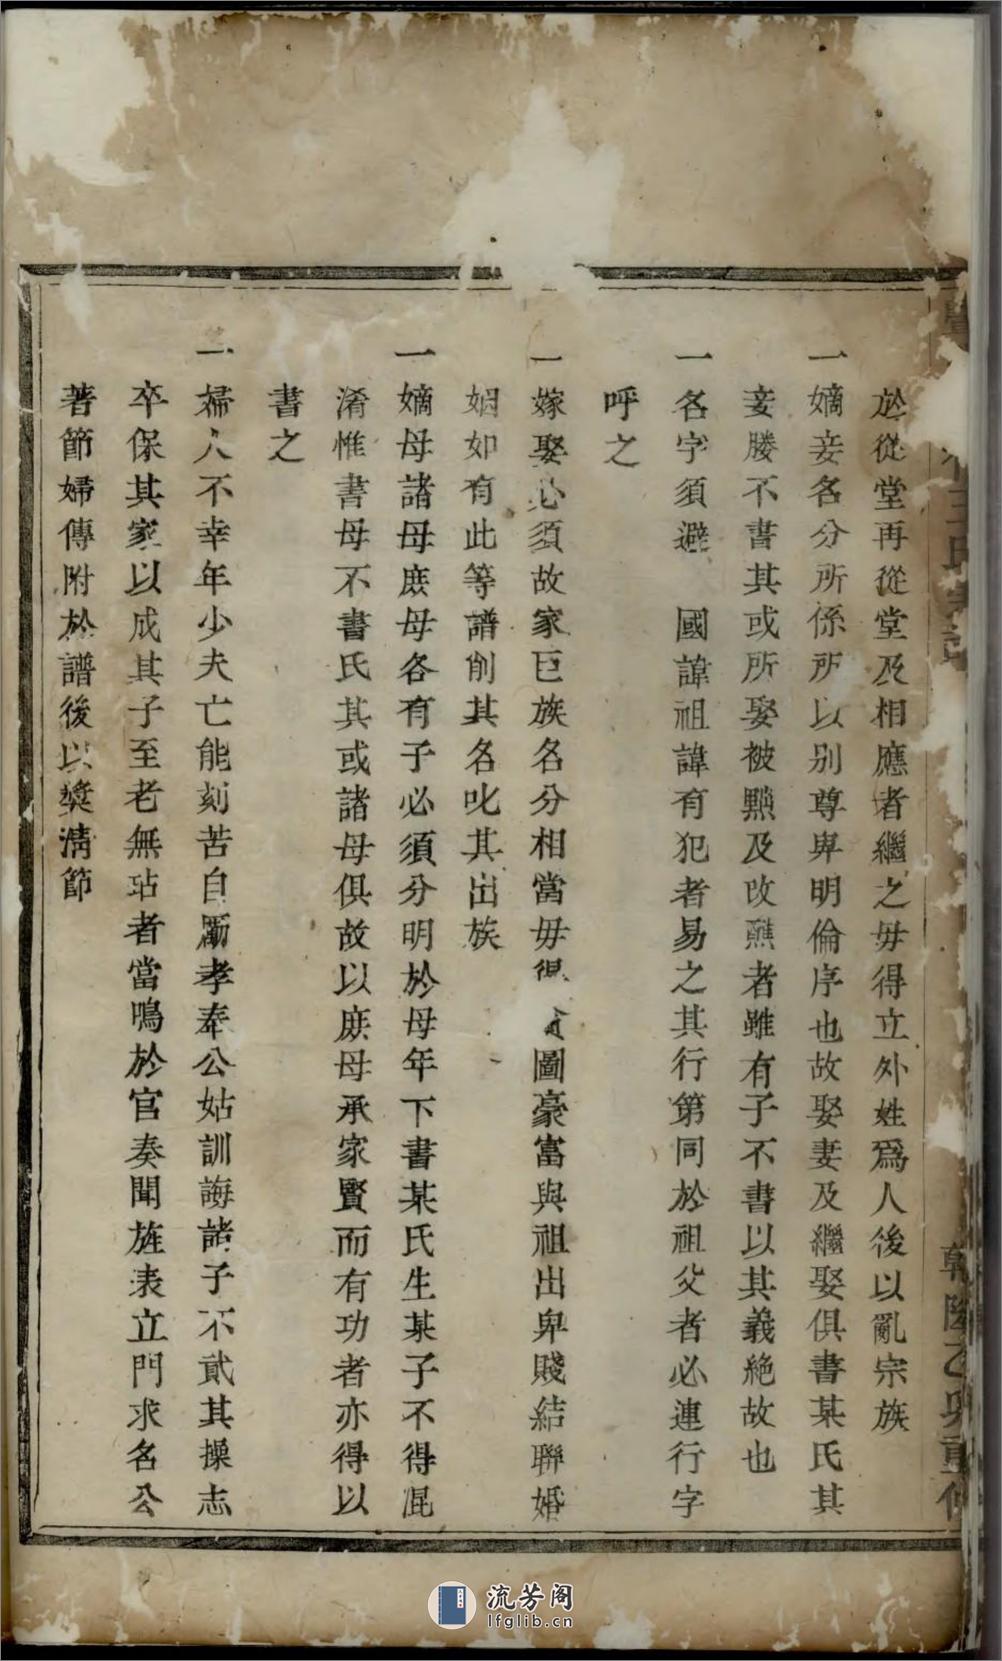 於從堂再從堂及相應者繼之毋得立外姓爲人後以亂宗族
一嫡妾各分所係所以别尊卑明倫序也故娶妻及繼娶俱書某氏其
妾媵不書其或所娶被黜及改醮者雖有子不書以其義絶故也
一名字須避 國諱祖諱有犯者易之其行第同於祖父者必連行字
呼之
一嫁娶必須故家巨族名分相當毋得圖豪富與祖出卑賤結聯婚
姻如有此等譜削其名叱其出族
一嫡母諸母庶母各有子必須分明於母年下書某氏生某子不得混
淆惟書母不書氏其或諸母俱故以庶母承家賢而有功者亦得以
書之
一婦人不幸年少夫亡能刻苦自勵孝奉公姑訓誨諸子不貳其操志
卒保其家以成其子至老無玷者當鳴於官奏聞旌表立門求名公
著節婦傳附於譜後以奬清節
王氏
乾隆乙卯重修
流芳阁
lfglib.cn